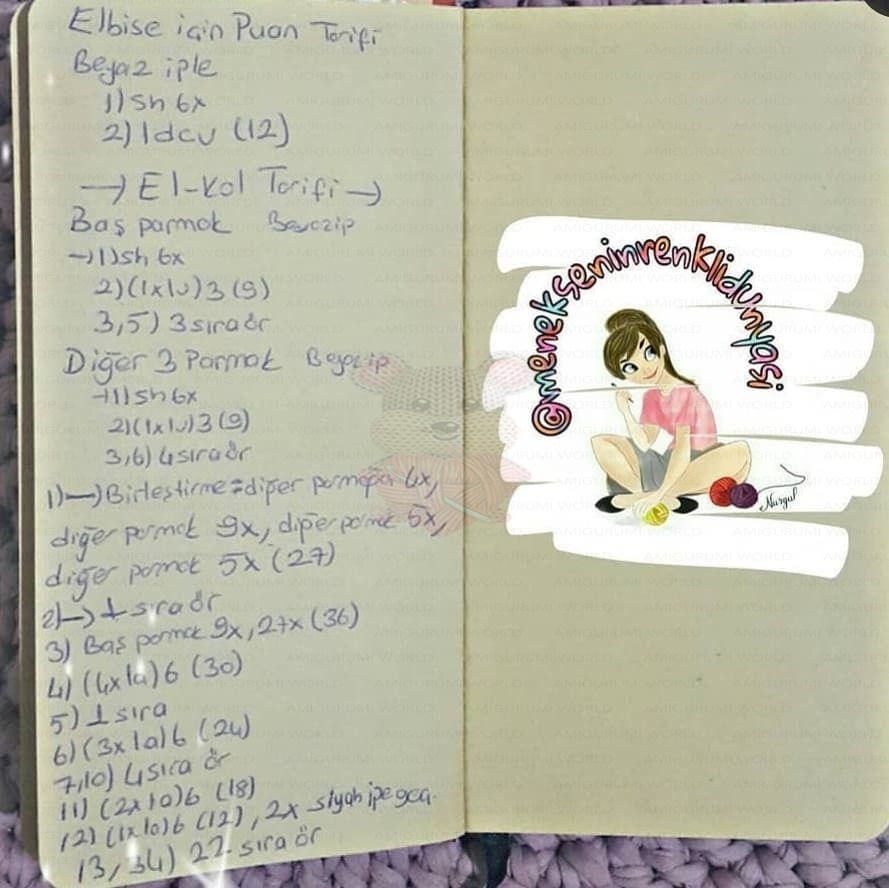 Elbise için Puan Tarifi
Beyaz iple
1) sh 6x
2) 1dcv (12)
→ El-Kol Tarifi →
Baş parmak Beyaz ip
→ 1) sh 6x
2) (1x1v) 3 (9)
3,5) 3 sıra ör
Diğer 3 Parmak Beyaz ip
→ 1) sh 6x
2) (1x1v) 3 (9)
3,6) 4 sıra ör
1) → Birleştirme = diğer parmağa 4x,
diğer parmak 9x, diğer parmak 5x,
diğer parmak 5x (27)
2) → 1 sıra ör
3) Baş parmak 9x, 27x (36)
4) (4x1a) 6 (30)
5) 1 sıra
6) (3x1a) 6 (24)
7,10) 4 sıra ör
11) (2x1a) 6 (18)
12) (1x1a) 6 (12), 2x siyah ipe geç.
13,34) 22 sıra ör
@menekseninrenklidunyasi
Nurgul
AMIGURUMI WORLD